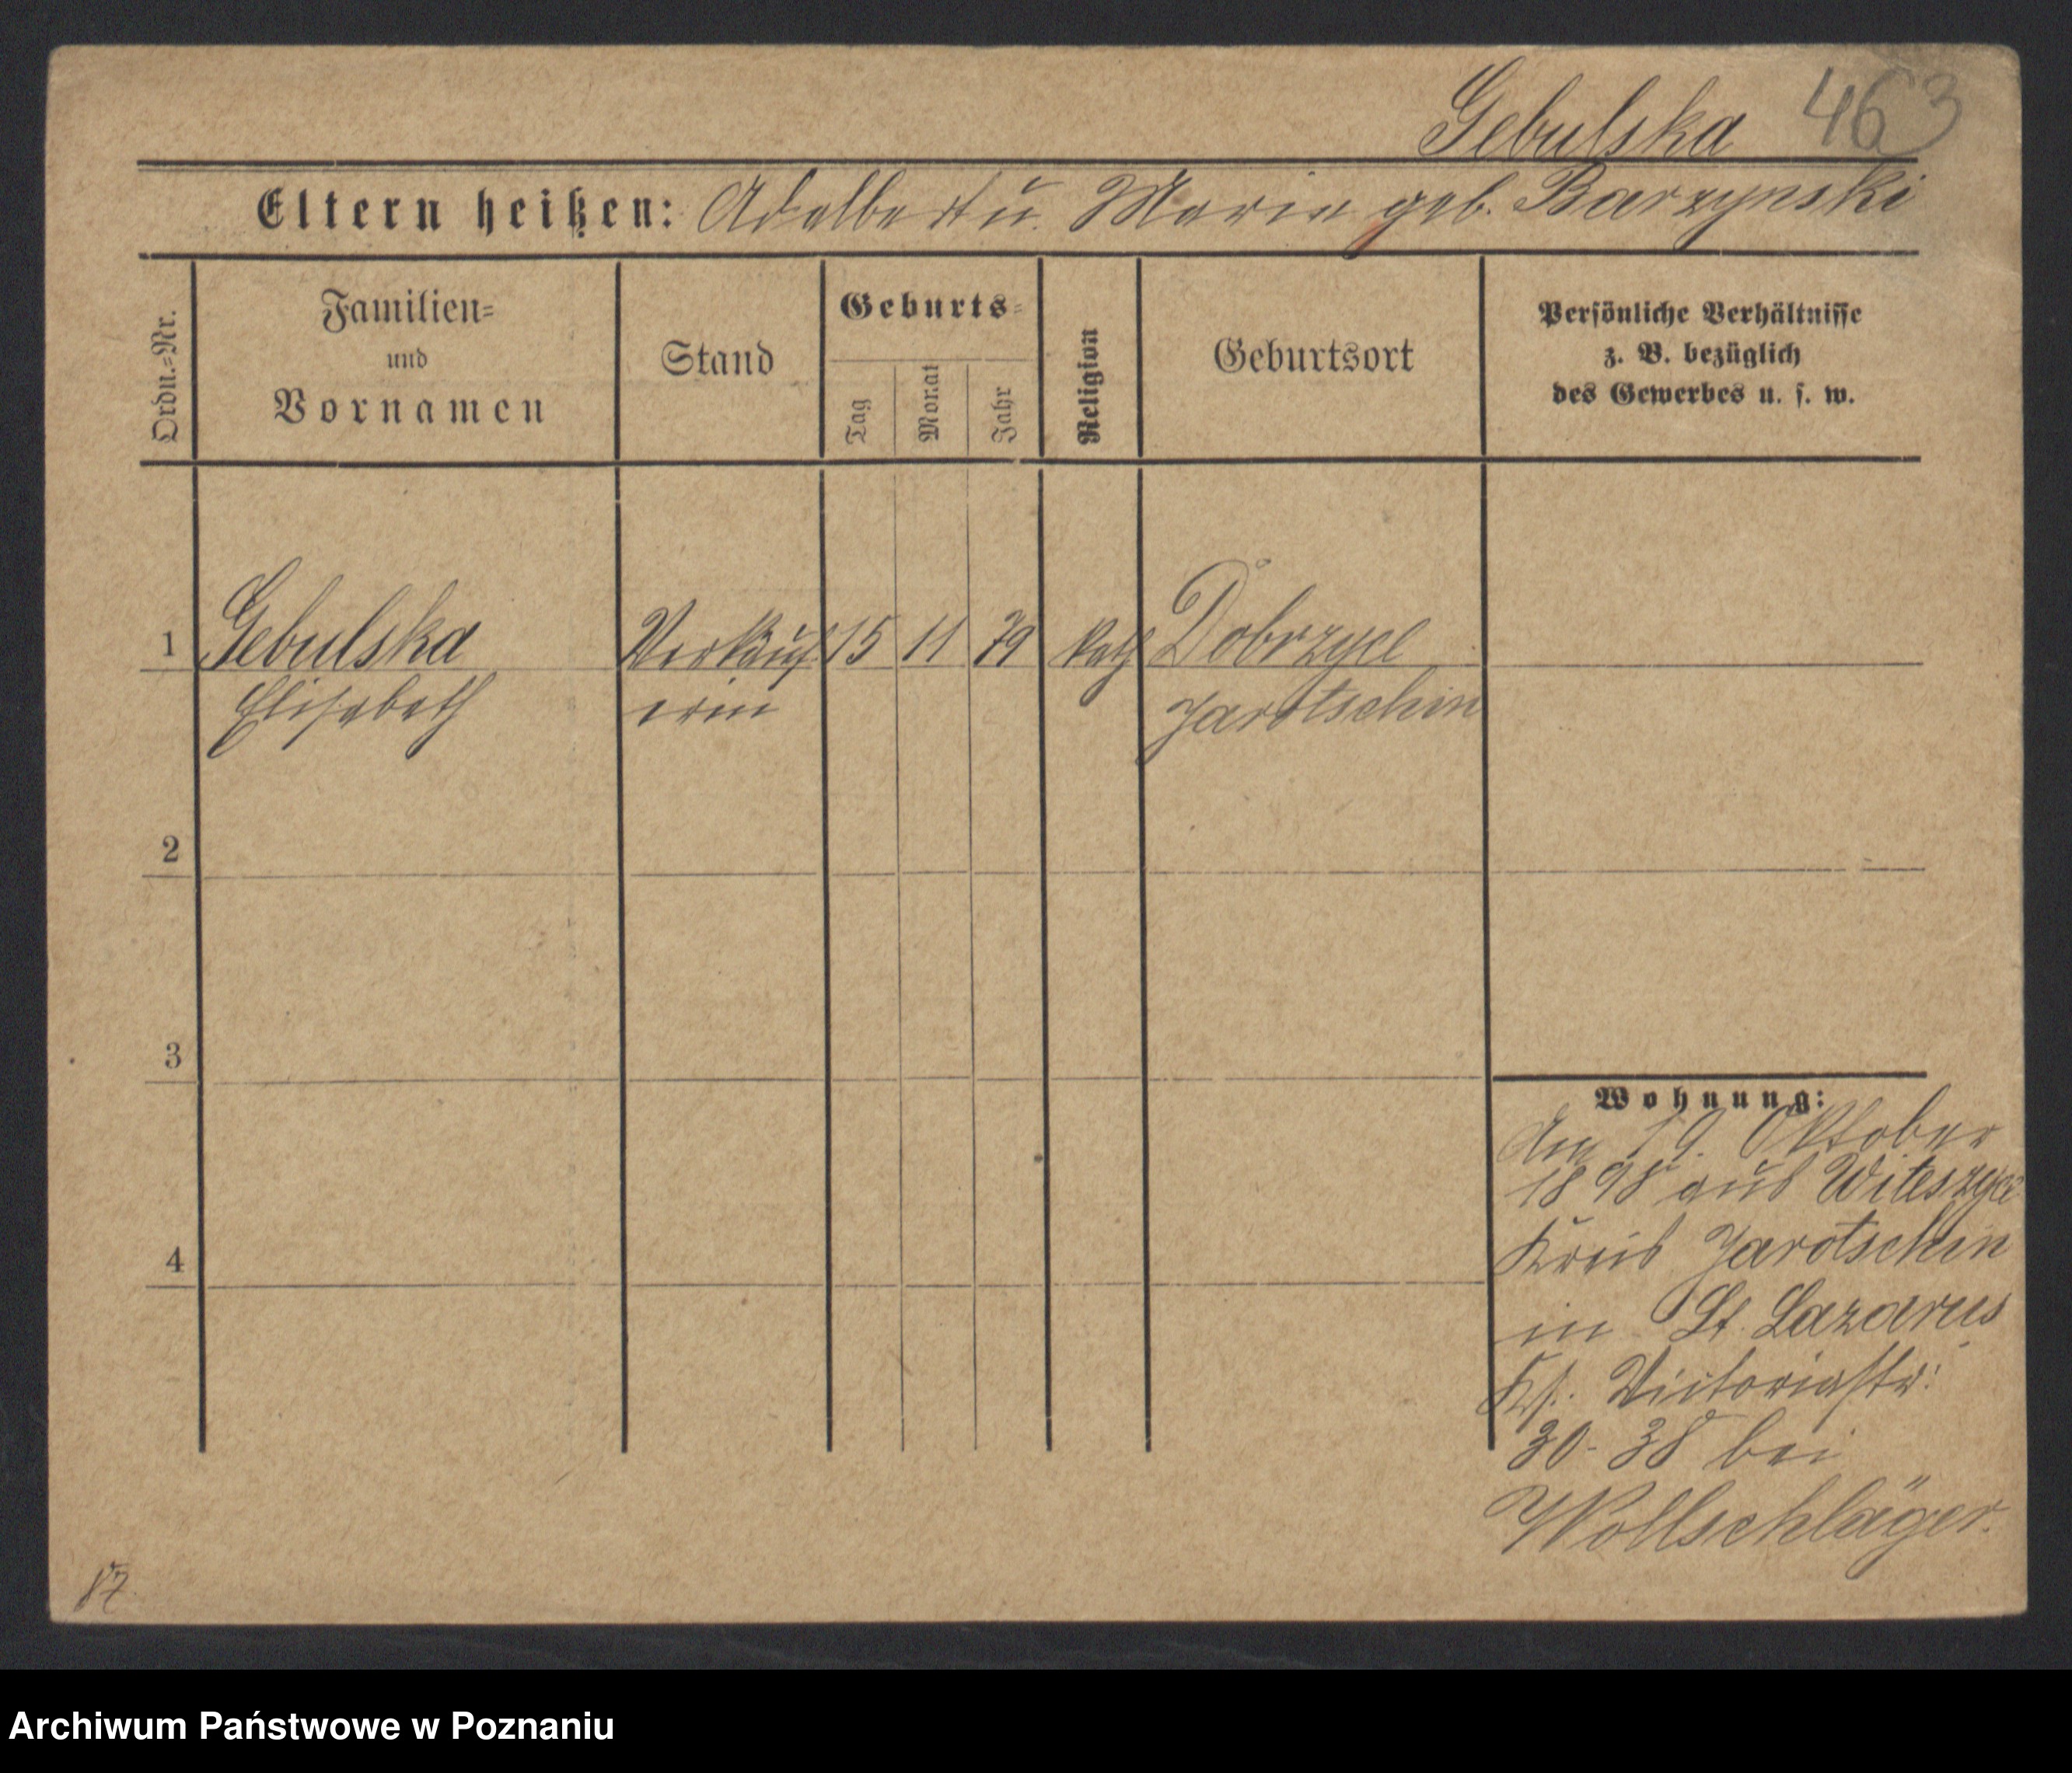 Gebulska 463
Eltern heißen: Adalbert u. Maria geb. Barzynski
Ordn.-Nr.
Familien-
und
Vornamen
Stand
Geburts-
Tag
Monat
Jahr
Religion
Geburtsort
Persönliche Verhältnisse
z. B. bezüglich
des Gewerbes u. s. w.
1 Gebulska Verkäuf 15 11 79 kath Dobrzyca
Elisabeth erin Jarotschin
2
3
4
Wohnung:
Am 19. Oktober
1898 aus Witeszyce
Kreis Jarotschin
in St. Lazarus
Ks. Victoriastr:
30-38 bei
Wollschläger.
87
Archiwum Państwowe w Poznaniu